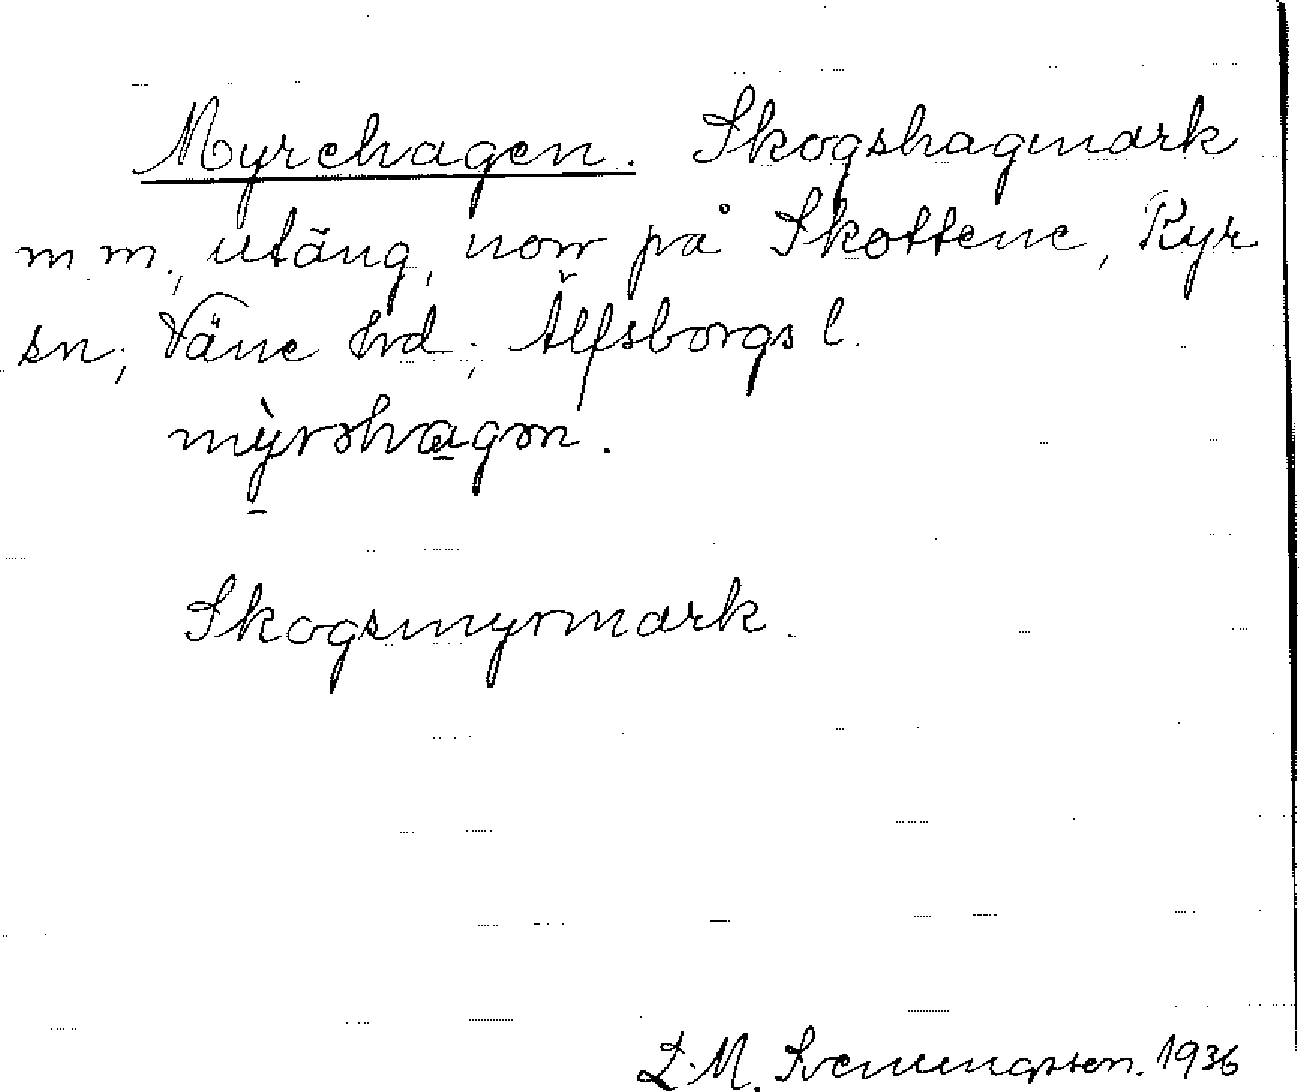 Myrehagen. Skogshagmark
m.m., utäng, norr på Skottene, Ryr
sn, Väne hrd, Älfsborgs l.
mỳrəhagən.
Skogsmyrmark.
L.M. Svenungsson. 1936